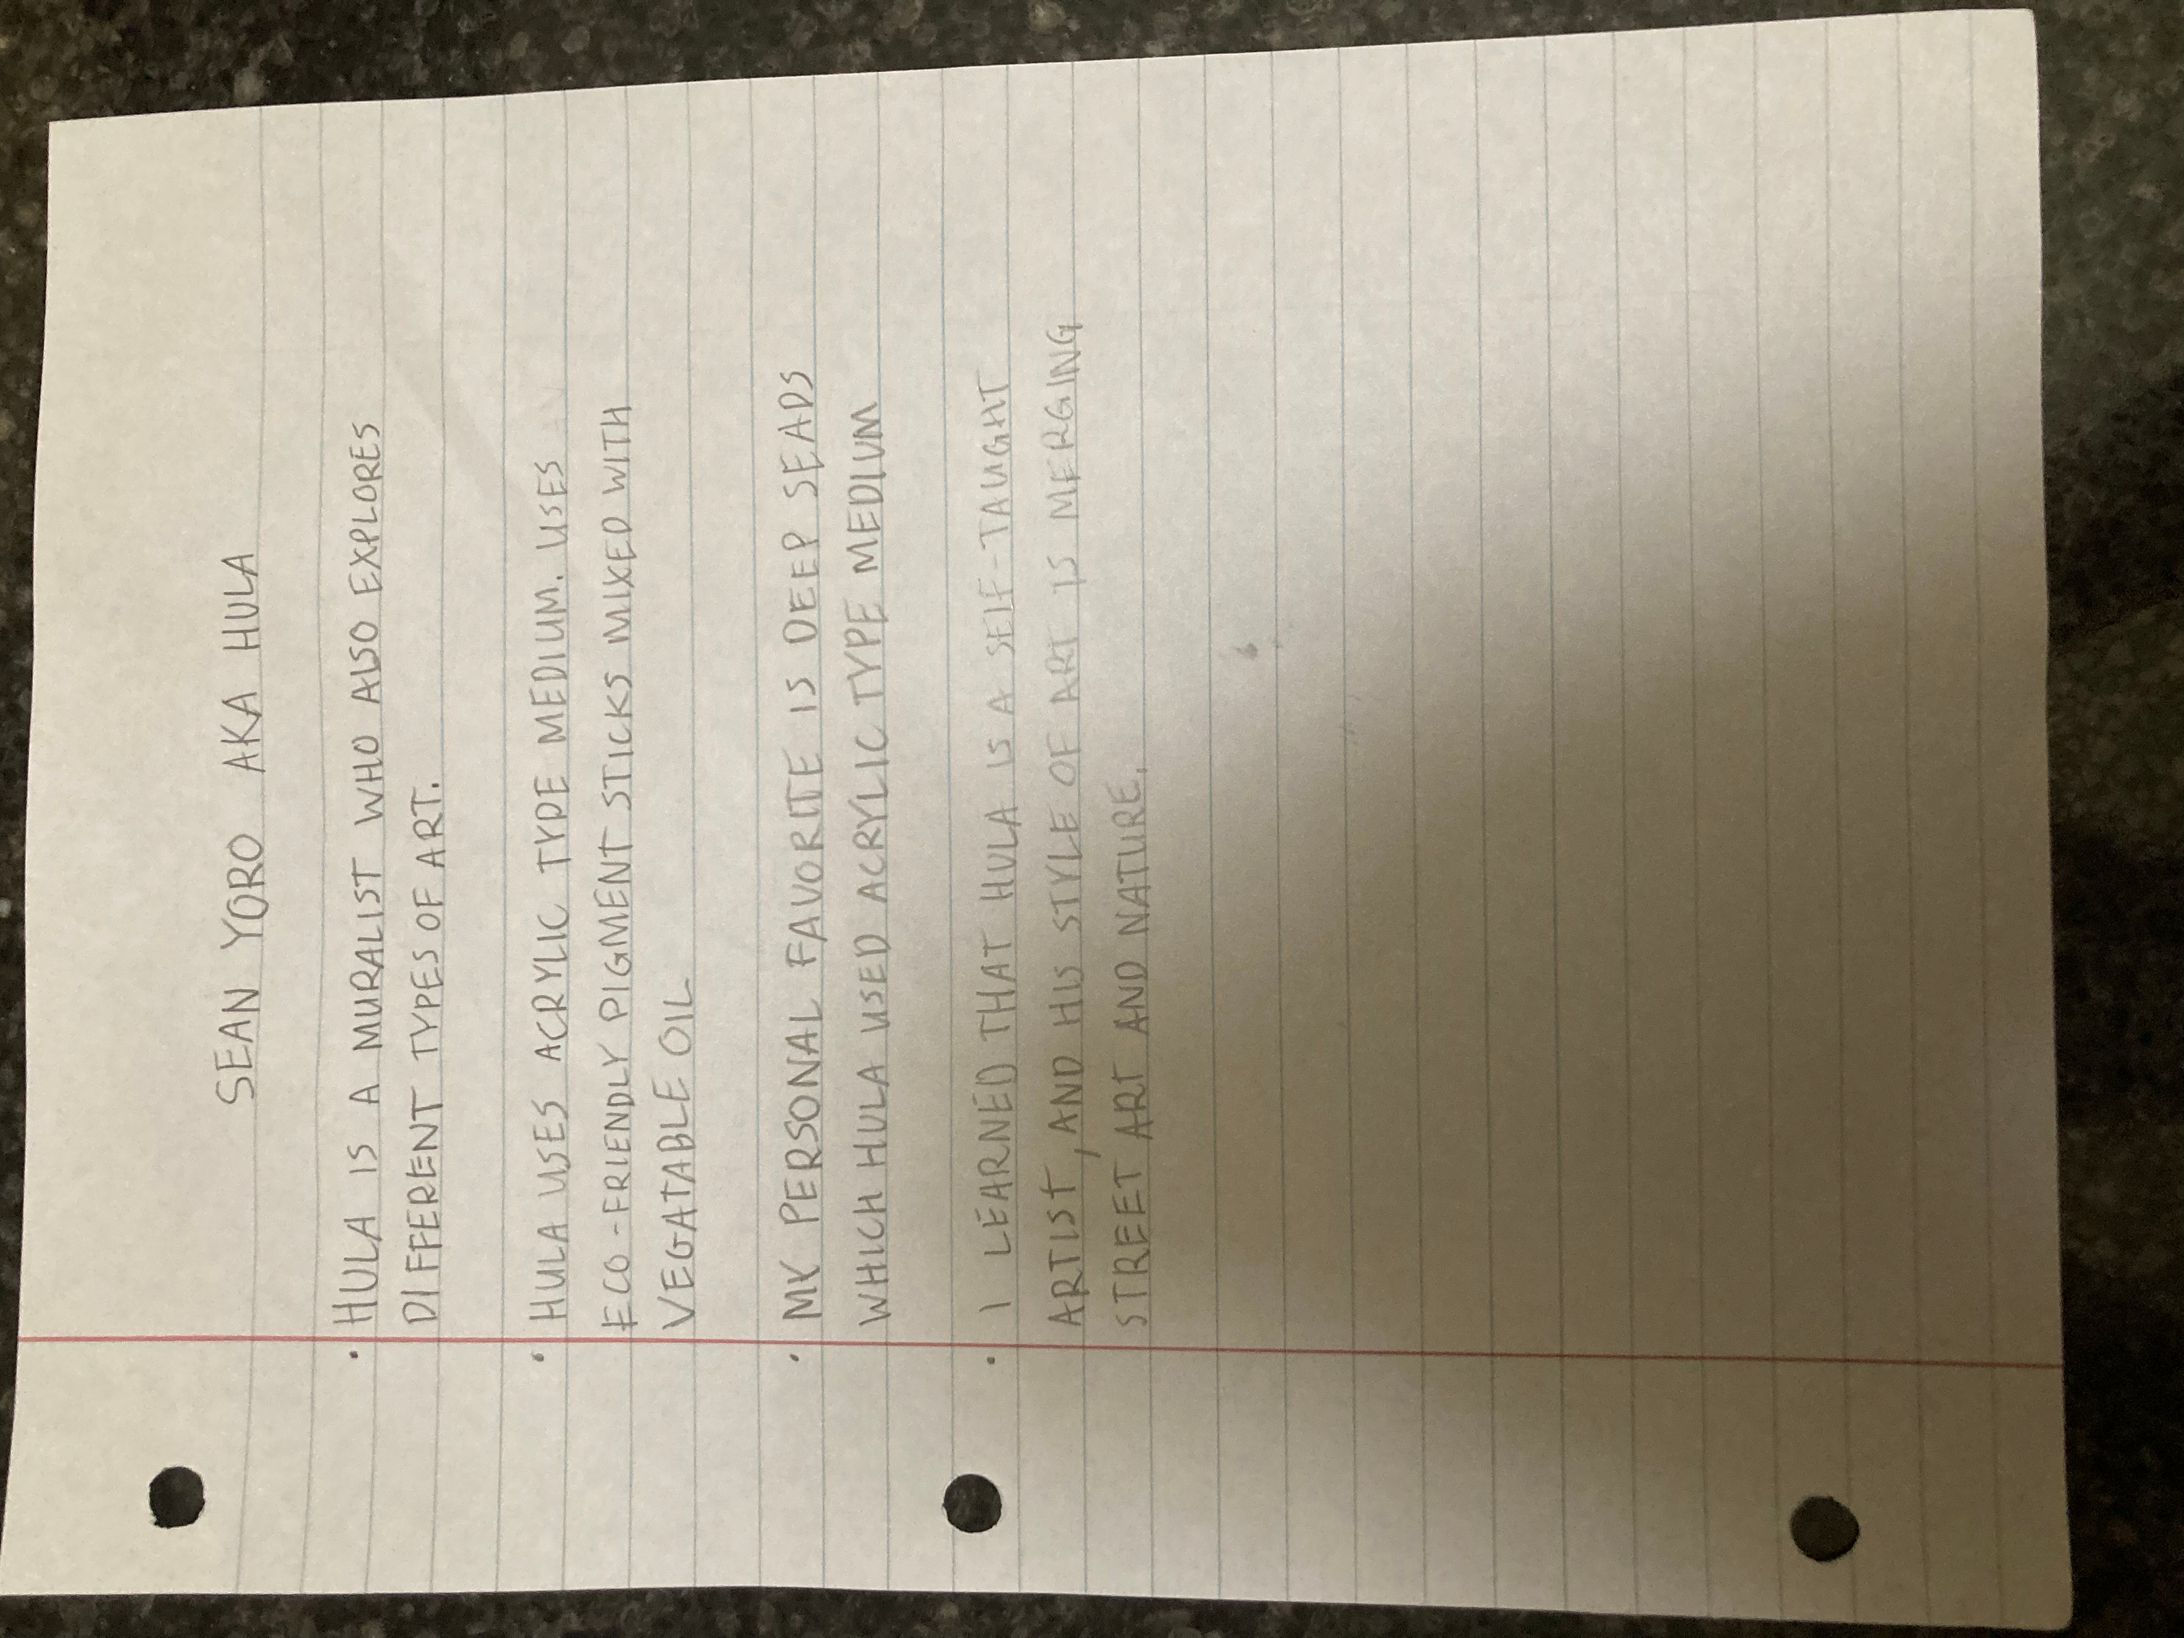 SEAN YORO AKA HULA
· HULA IS A MURALIST WHO ALSO EXPLORES
DIFFERENT TYPES OF ART.
· HULA USES ACRYLIC TYPE MEDIUM. USES
ECO-FRIENDLY PIGMENT STICKS MIXED WITH
VEGATABLE OIL
· MY PERSONAL FAVORITE IS DEEP SEADS
WHICH HULA USED ACRYLIC TYPE MEDIUM
· I LEARNED THAT HULA IS A SELF-TAUGHT
ARTIST, AND HIS STYLE OF ART IS MERGING
STREET ART AND NATURE.